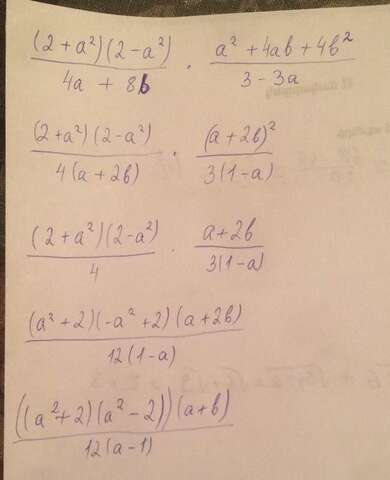 (2+a²)(2-a²)/(4a + 8b) · (a² + 4ab + 4b²)/(3-3a)
(2+a²)(2-a²)/(4(a+2b)) · (a+2b)²/(3(1-a))
(2+a²)(2-a²)/4 · (a+2b)/(3(1-a))
(a²+2)(-a²+2)(a+2b)/(12(1-a))
((a²+2)(a²-2))(a+b)/(12(a-1))